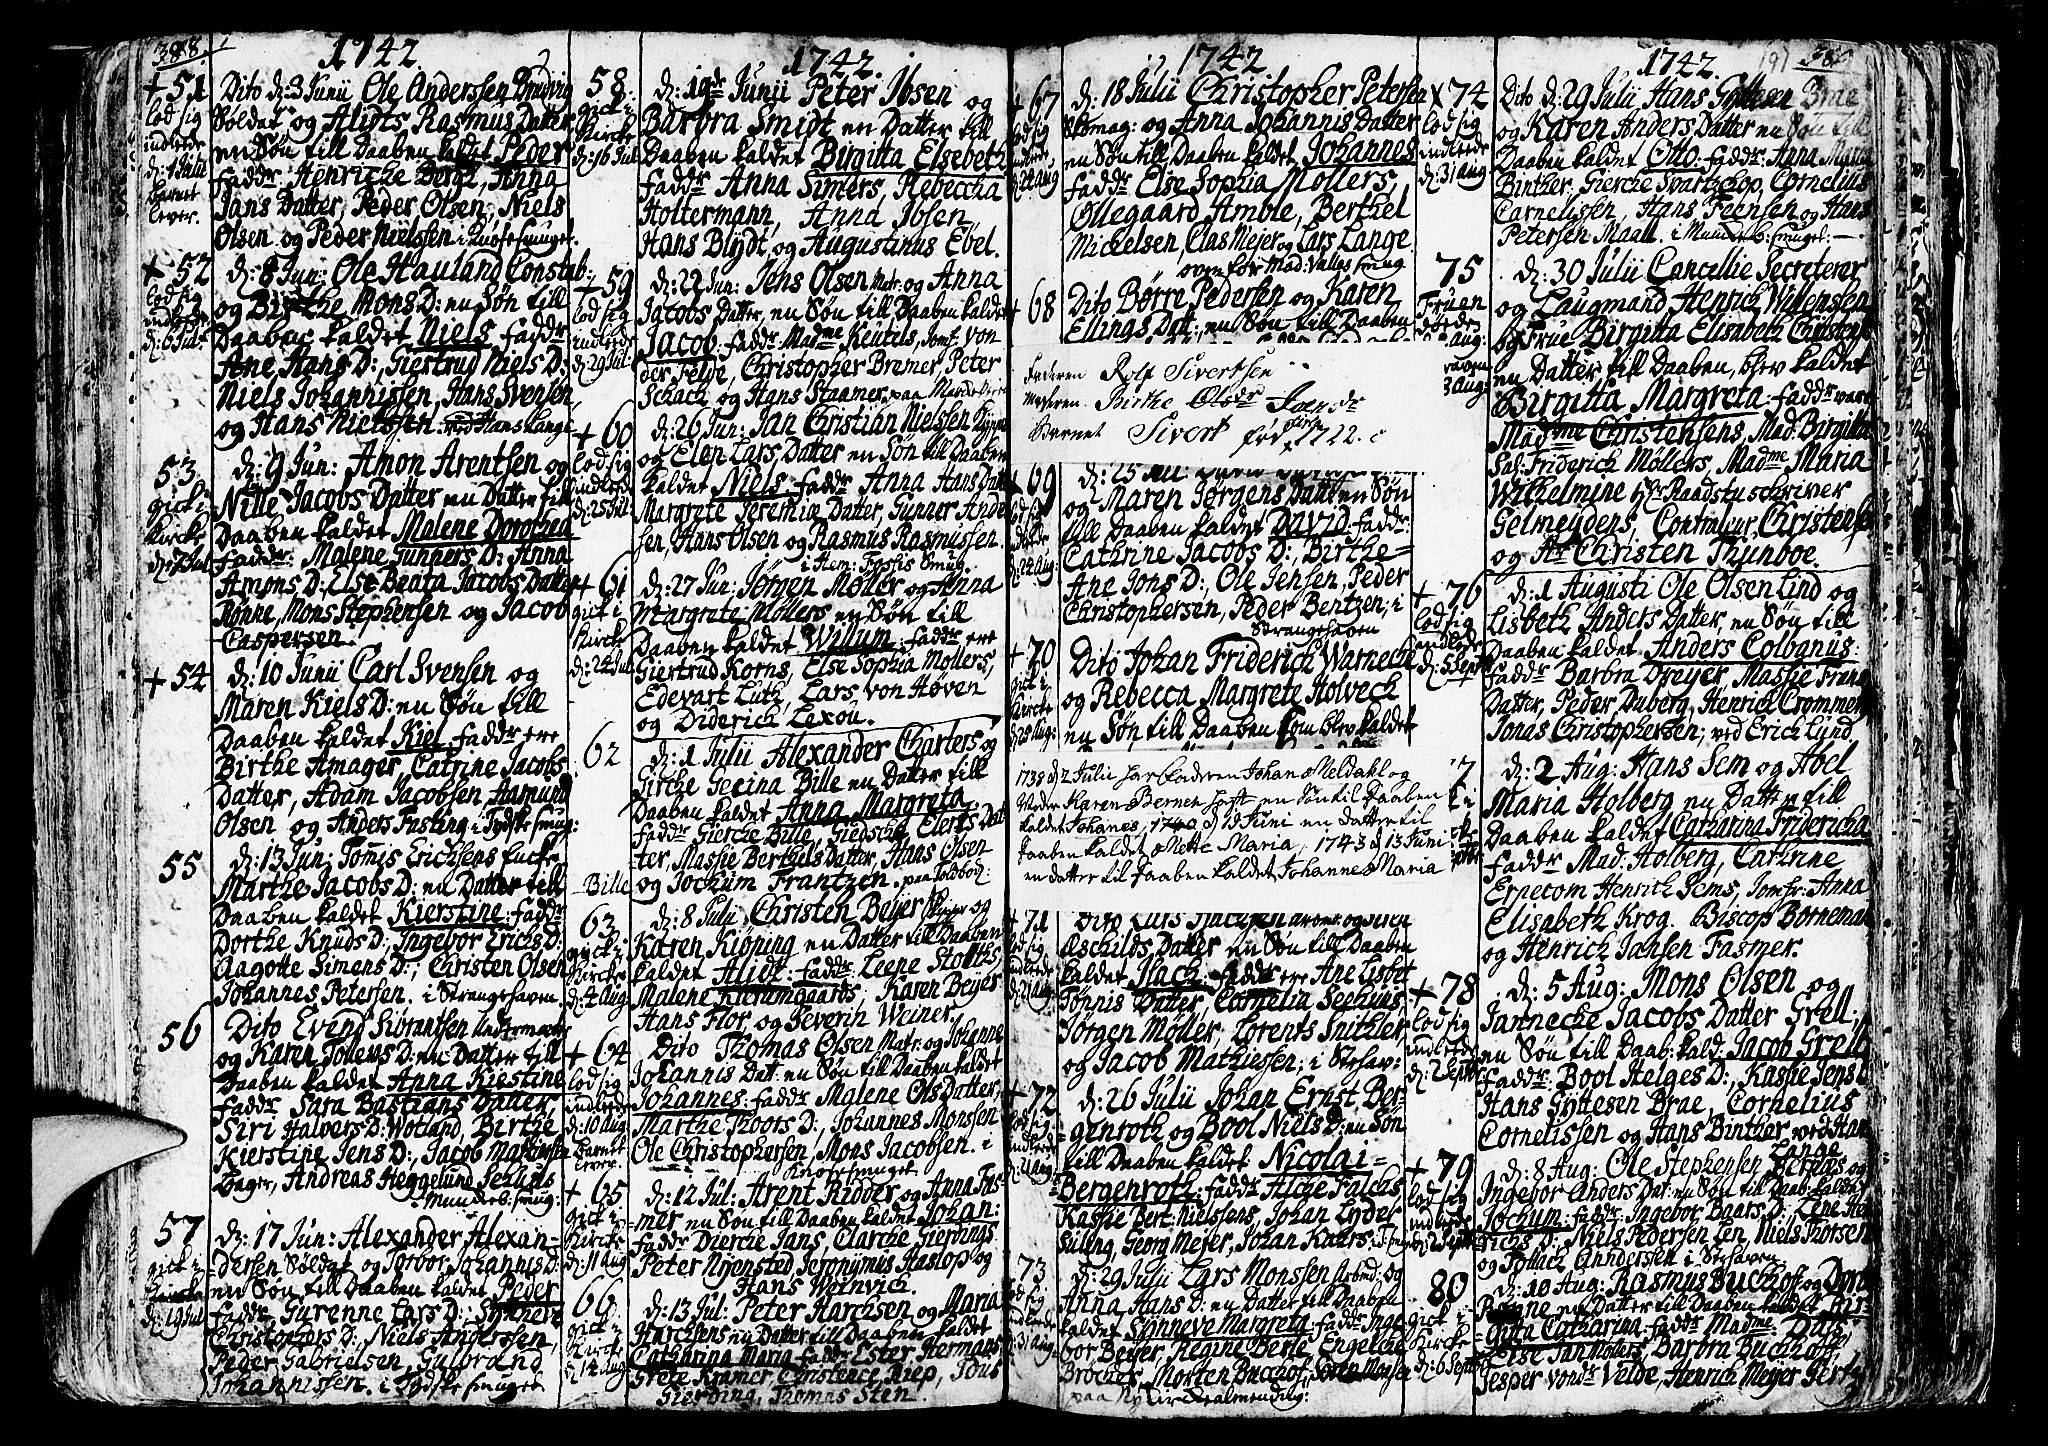 388.
1742.
+ 51
lod sig
indlede
d: 1 Julii
barnet
lever.
Dito d: 3 Junii Ole Anderssen
Soldat og Alidts Rasmus Datter
en Søn till Daaben kaldet Peder
faddr Henricke Bergt, Anna
Jans Datter, Peder Olsen, Niels
Olsen og Peder Nielssen i Knøsesmuget.
+ 52
lod sig
indlede
d: 6 Jul:
d: 8 Jun: Ole Hauland Constab:
og Birthe Mons D: en Søn till
Daaben kaldet Niels faddr
Ane Hans D:, Giertrud Niels D:
Niels Johannissen, Hans Svensen,
og Hans Nielssen ved Hans Lange
53
gick i
Kircke
d: 7 Jul
d: 9 Jun: Amon Arentsen og
Nille Jacobs Datter en Datter till
Daaben kaldet Malene Dorothea
faddr: Malene Tunners D: Anna
Amons D: Else Beata Jacobs Datter
Rønne, Mons Stephensen og Jacob
Caspersen
+ 54
d: 10 Junii Carl Svensen og
Maren Kiels D: en Søn till
Daaben kaldet Kiel faddr ere
Birthe Amager, Catrine Jacobs
Datter, Adam Jacobsen, Aamund
Olsen og Anders Fasting i Tydskesmug:
55
d: 13 Jun: Tomis Erichsens Encke
Marthe Jacobs D: en Datter till
Daaben kaldet Kierstine faddr
Dorthe Knuds D:, Ingebor Erichs D:
Aagotte Simens D:, Christen Olsen
Johannes Petersen. i Strangehaven
56
Dito Evend Siørantsen
og Karen Tollevs D: en Datter till
Daaben kaldet Anna Kiestine
faddr Sara Bastians Datter,
Siri Halvers D: Wotland, Birthe
Kierstine Jens D:, Jacob Martensen
Bager, Andreas Heggelund Sehusis
Munckeb: smug:
57
gick i
Kircke
d: 19 Jul
d: 17 Jun: Alexander Alexan-
dersen Soldat og Torbor Johannis D:
en Søn till Daaben kaldet Peder
faddr, Gurenne Lars D: Synneve
Christophers D: Niels Anderssen,
Peder Gabrielsen, Gulbrand
Johannissen. i Tydskesmuget
1742.
58
gick i
Kircke
d: 16 Jul
d: 19de Junii Peter Ibsen og
Barbra Smidt en Datter till
Daaben kaldet Birgitta Elsebeth
faddr Anna Simers, Rebeccha
Holtermann, Anna Ibsen
Hans Blydt, og Augustinus Ebel.
+ 59
lod sig
indlede
d: 29 Jul:
d: 22 Jun: Jens Olsen Matr: og Anna
Jacobs Datter, en Søn till Daaben kaldet
Jacob faddr Madme Keutels, Jomf: von
der Felde, Christopher Bremer, Peter
Schack og Hans Staamer
+ 60
lod sig
indlede
d: 25 Jul:
d: 26 Jun: Jan Christian Nielssen
og Elen Lars Datter en Søn till Daaben
kaldet Niels faddr Anna Hans Datter
Margrete Jeremiæ Datter, Gunner Ander
sen, Hans Olsen og Rasmus Rasmussen.
i Hem: Fosses Smug.
+ 61
gick i
Kircke
d: 24 Jul
d: 27 Jun: Jørgen Møller og Anna
Margrete Møllers en Søn till
Daaben kaldet Willum faddr ere
Giertrud Korns, Else Sophia Møllers,
Edevart Lutz, Lars von Høven
og Diderich Lexou.
62
Bille
d: 1 Julii Alexander Charters og
Girche Gecina Bille en Datter till
Daaben kaldet Anna Margreta
faddr Giercke Bille, Giedsche Elerts Dat-
ter, Massie Berthels Datter, Hans Olsen
og Jochum Frantzen. paa Toldbod:
63
gick i
Kircke
d: 4 Aug
d: 8 Julii Christen Beyer og
Karen Kiøning en Datter till Daaben
kaldet Alidt: faddr Leene Stolts
Malene Kierumgaards, Karen Beyes
Hans Flor og Severin Weiner.
+ 64
lod sig
indlede
d: 10 Aug
Barnet
lever.
Dito Thomas Olsen Matr: og Johanne
Johannis Dat: en Søn till Daaben kaldet
Johannes faddr Malene Ols Datter,
Marthe Thoors D:, Johannes Monsen
Ole Christophersen, Mons Jacobsen. i
Knøsesmuget
+ 65
gick i
Kircke
d: 11 Aug
d: 12 Jul: Arent Ridder og Anna Fas-
mer en Søn till Daaben kaldet Johan:
faddr Diercke Jans, Clarche Gierdings
Peter Nyensted Jeronymus Haslop og
Hans Weinvich.
66
Gick i
Kircke
d: 14 Aug
d: 13 Jul: Peter Harchsen og Maria
Harchsens en Datter till Daaben kaldet
Catharina Maria faddr Ester Hermans
Grete Kramer Christence Riep, Tous
Gierding, Thomas Sten.
1742
+ 67
d: 24 Aug
d: 18 Julii Christopher Petersen
Skomag: og Anna Johannis Datter
en Søn till Daaben kaldet Johannes
faddr Else Sophia Mollers,
Øllegaard Amble, Berthel
Mickelsen, Clas Mejer og Lars Lange
oven for Mad: Valles smug
+ 68
Dito Børre Pedersen og Karen
Ellings Datt: en Søn till Daaben
Faderen Rolf Sivertsen
Moderen. Birthe Olsdr
Barnet Sivert fød 1722.
+ 69
d: 24 Aug:
og Maren Jørgens Datt en Søn
till Daaben kaldet David faddr
Cathrine Jacobs D:, Birthe
Ane Jons D:, Ole Jensen, Peder
Christophersen, Peder Bentzen; i
Strangehaven
+ 70
gick i
Kircke
d: 28 Aug:
Dito Johan Friderich Warnecke
og Rebecca Margrete Holveck
en Søn till Daaben som blev kaldet
1738 d 2 Julii har Faderen Johan Meldahl og
Moder Karen Bernen Haft en Søn til Daaben
kaldet Johanes, 1740 d 19 Juni en datter til
Daaben kaldet Mette Maria, 1743 d 13 Juni
en datter til Daaben kaldet Johanne Maria
+ 71
lod sig
indlede
d: 21 Aug
Dito Lars
Æschilds Datter en Søn till Daaben
kaldet Isach faddr ere Ane Lisbet
Tønnis Datter, Cornelia Seehuus
Jørgen Møller, Lorents Snithler
og Jacob Mathiessen; i Strhav:
+ 72
lod sig
indlede
d: 21 Aug
d: 26 Julii Johan Ernst Ber-
genroth og Bool Niels D: en Søn
till Daaben kaldet Nicolai-
Bergenroth: faddr Alche Falchs
Kassie Bert: Nielssens, Johan Lyder
Süling, Georg Mejer, Johan Kahrs:
73
lod sig
indlede
d: 31 Aug
d: 29 Julii Lars Monssen Arbmd: og
Anna Hans D: en Datter till Daaben
kaldet Synneve Margreta faddr Inge
bor Beyer, Regine Berle, Engelche
Brochers, Morten Buchhof, Søren Monsen
paa Ny
1742.
191
+ 74
lod sig
indlede
d: 31 Aug
Dito d: 29 Julii Hans Gyttesen Brae
og Karen Anders Datter en Søn till
Daaben kaldet Otto. faddr: Anna Maria
Binther, Giercke Svartzkop, Cornelius
Carnelissen, Hans Feensen og Hans
Petersen Maall. i Munckeb: smuget:
75
Fruen
døde den
aug:
3 Aug
d: 30 Julii Cancellie Secreterer
og Laugmand Henrich Willemssen
og Frue Birgitta Elisabeth Christens
en Datter till Daaben, blev kaldet
Birgitta Margreta: faddr vare
Madme Christensens, Mad: Birgitta
Sal: Friderich Møllers, Madme Maria
Wilhelmine Hr Raadstuschriver
Gelmeydens, Contraleur Christensen
og Hr Christen Thunboe.
+ 76
lod sig
indlede
d: 5 Septr
d: 1 Augusti Ole Olsen Lind og
Lisbeth Anders Datter, en Søn till
Daaben kaldet Anders Colbanus:
faddr Barbra Dreyer, Massie Frans
Datter, Peder Duberg, Henrich Crommen,
Jonas Christophersen; ved Erich Lynd.
d: 2 Aug: Hans Sem og Abel
Maria Holberg en Datter till
Daaben kaldet Catharina Fridericha
faddr Mad: Holberg, Cathrine
Erpecom Henrich Sems, Jomfr: Anna
Elisabeth Krog. Biscop Borneman
og Henrich Jansen Fasmer.
+ 78
lod sig
indlede
d: 2 Septbr
d: 5 Aug: Mons Olsen og
Jannecke Jacobs Datter Grell:
en Søn till Daab: kald: Jacob Grell
faddr: Bool Helges D:, Kassie Jens D
Hans Gyttesen Brae, Cornelius
Cornelissen og Hans Binther ved Hans
Lange
+ 79
lod sig
indlede
d: 2 Septr
d: 8 Aug: Ole Stephensen og
Ingebor Anders Dat: en Søn till Daab: kaldet
Jochum: faddr Ingebor Baars D: Lene Hen
richs D: Niels Pedersen Len, Niels Thorsen
og Pollack Anderssen i Strhaven
80
gick i
Kircke
d: 6 Septbr
d: 10 Aug: Rasmus Buchhof og Dorte
Rønne en Datter till Daaben kaldet Bir-
gitta Catharina: faddr Madme:
Else Jan Mollers, Barbra Buchhof,
Jesper vondr Velde, Henrich Meyer